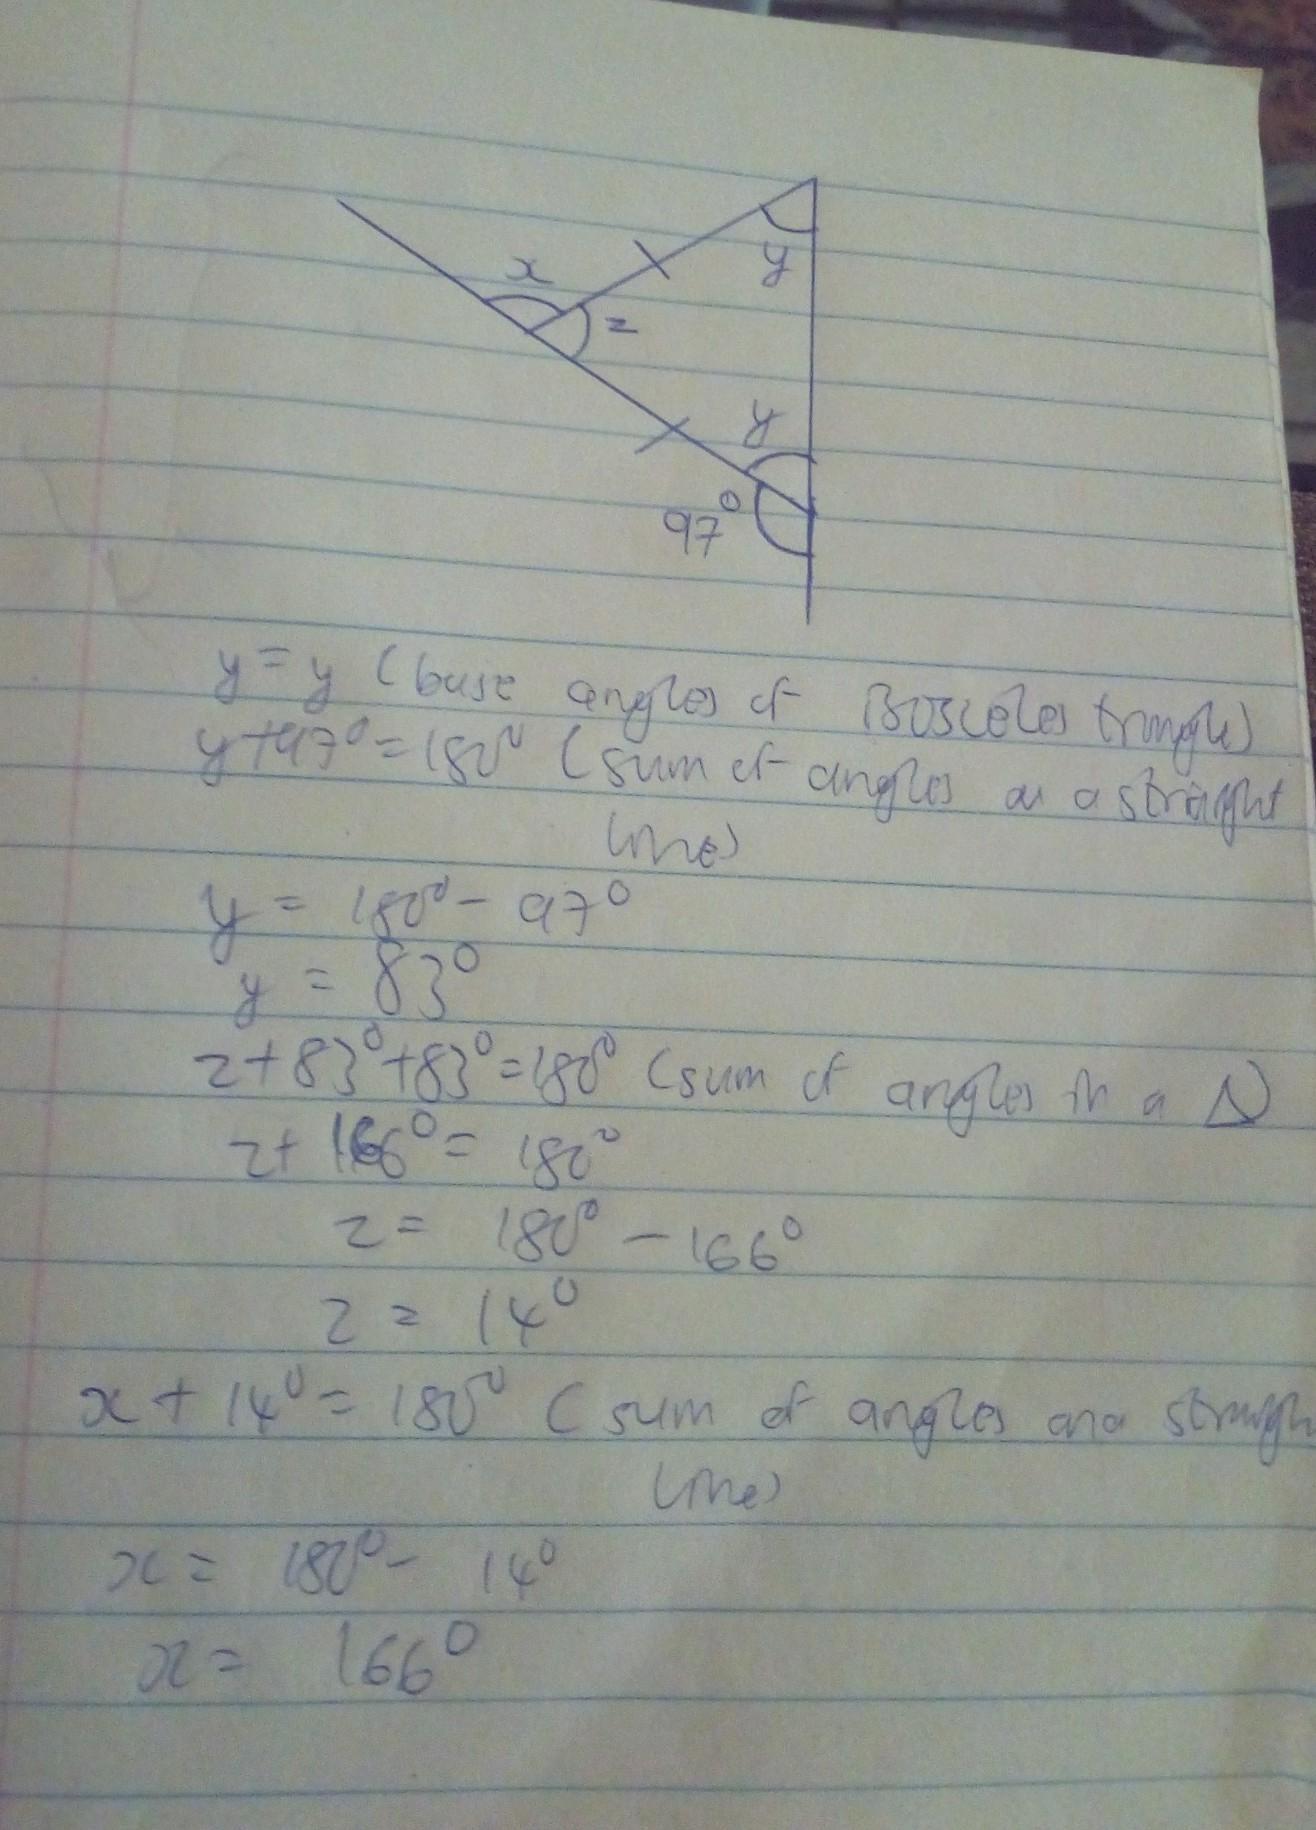 x
y
z
y
97°
y = y (base angles of isosceles triangle)
y+97°=180° (sum of angles on a straight
line)
y = 180° - 97°
y = 83°
z+83°+83°=180° (sum of angles in a Δ)
z+ 166° = 180°
z = 180° - 166°
z = 14°
x + 14° = 180° (sum of angles on a straigh
line)
x = 180° - 14°
x = 166°